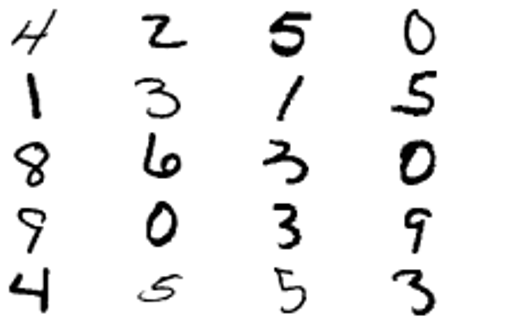 4 2 5 0
1 3 1 5
8 6 3 0
9 0 3 9
4 5 5 3